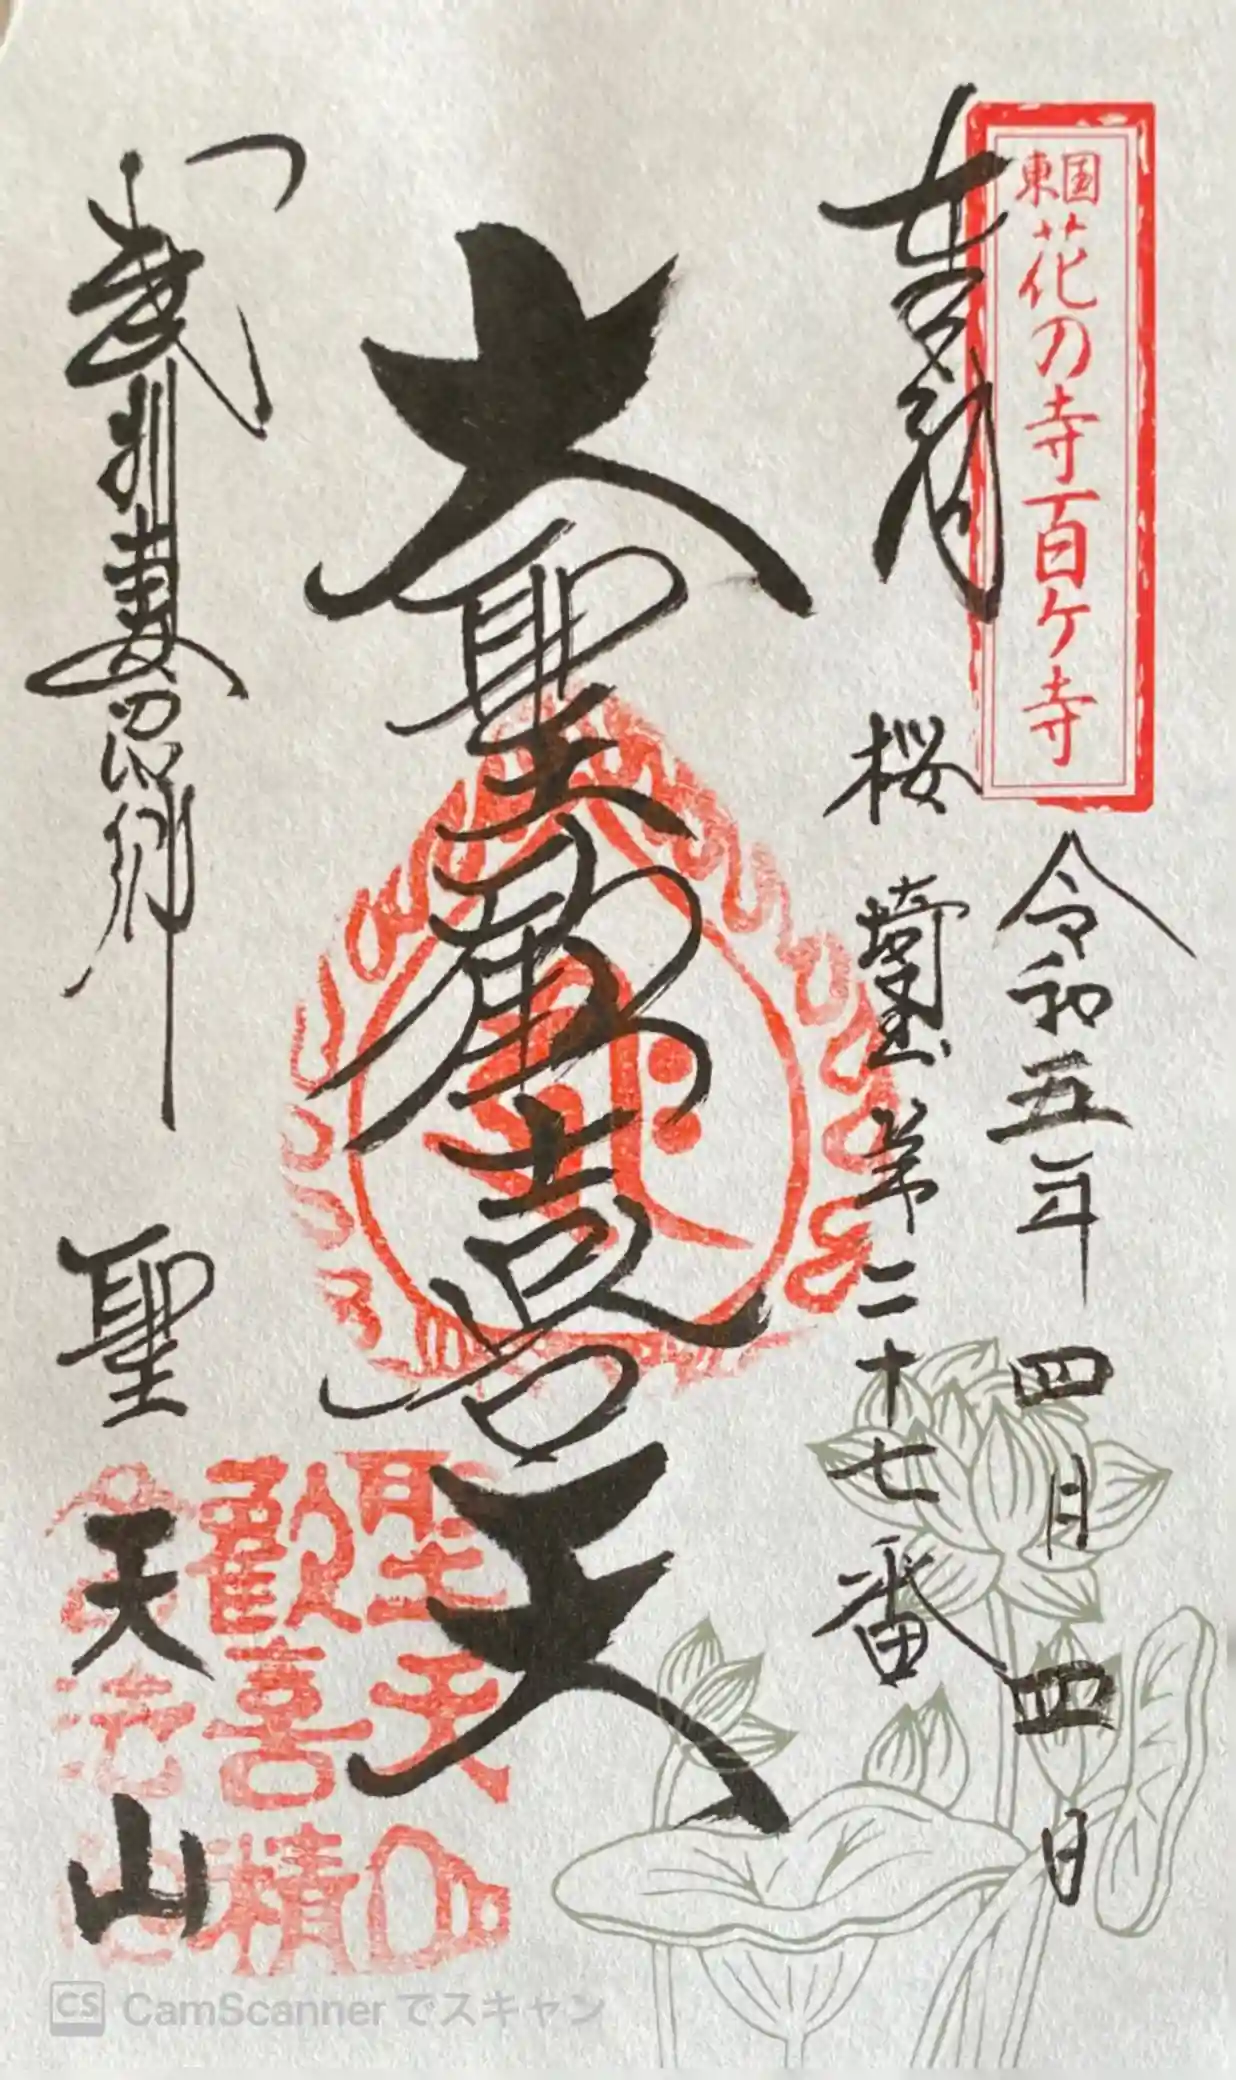 東国花の寺百ケ寺
奉拝
令和五年四月四日
桜 埼玉第二十七番
大聖歓喜天
武州妻沼郷
聖天山
聖天山
歓喜精
CamScanner でスキャン